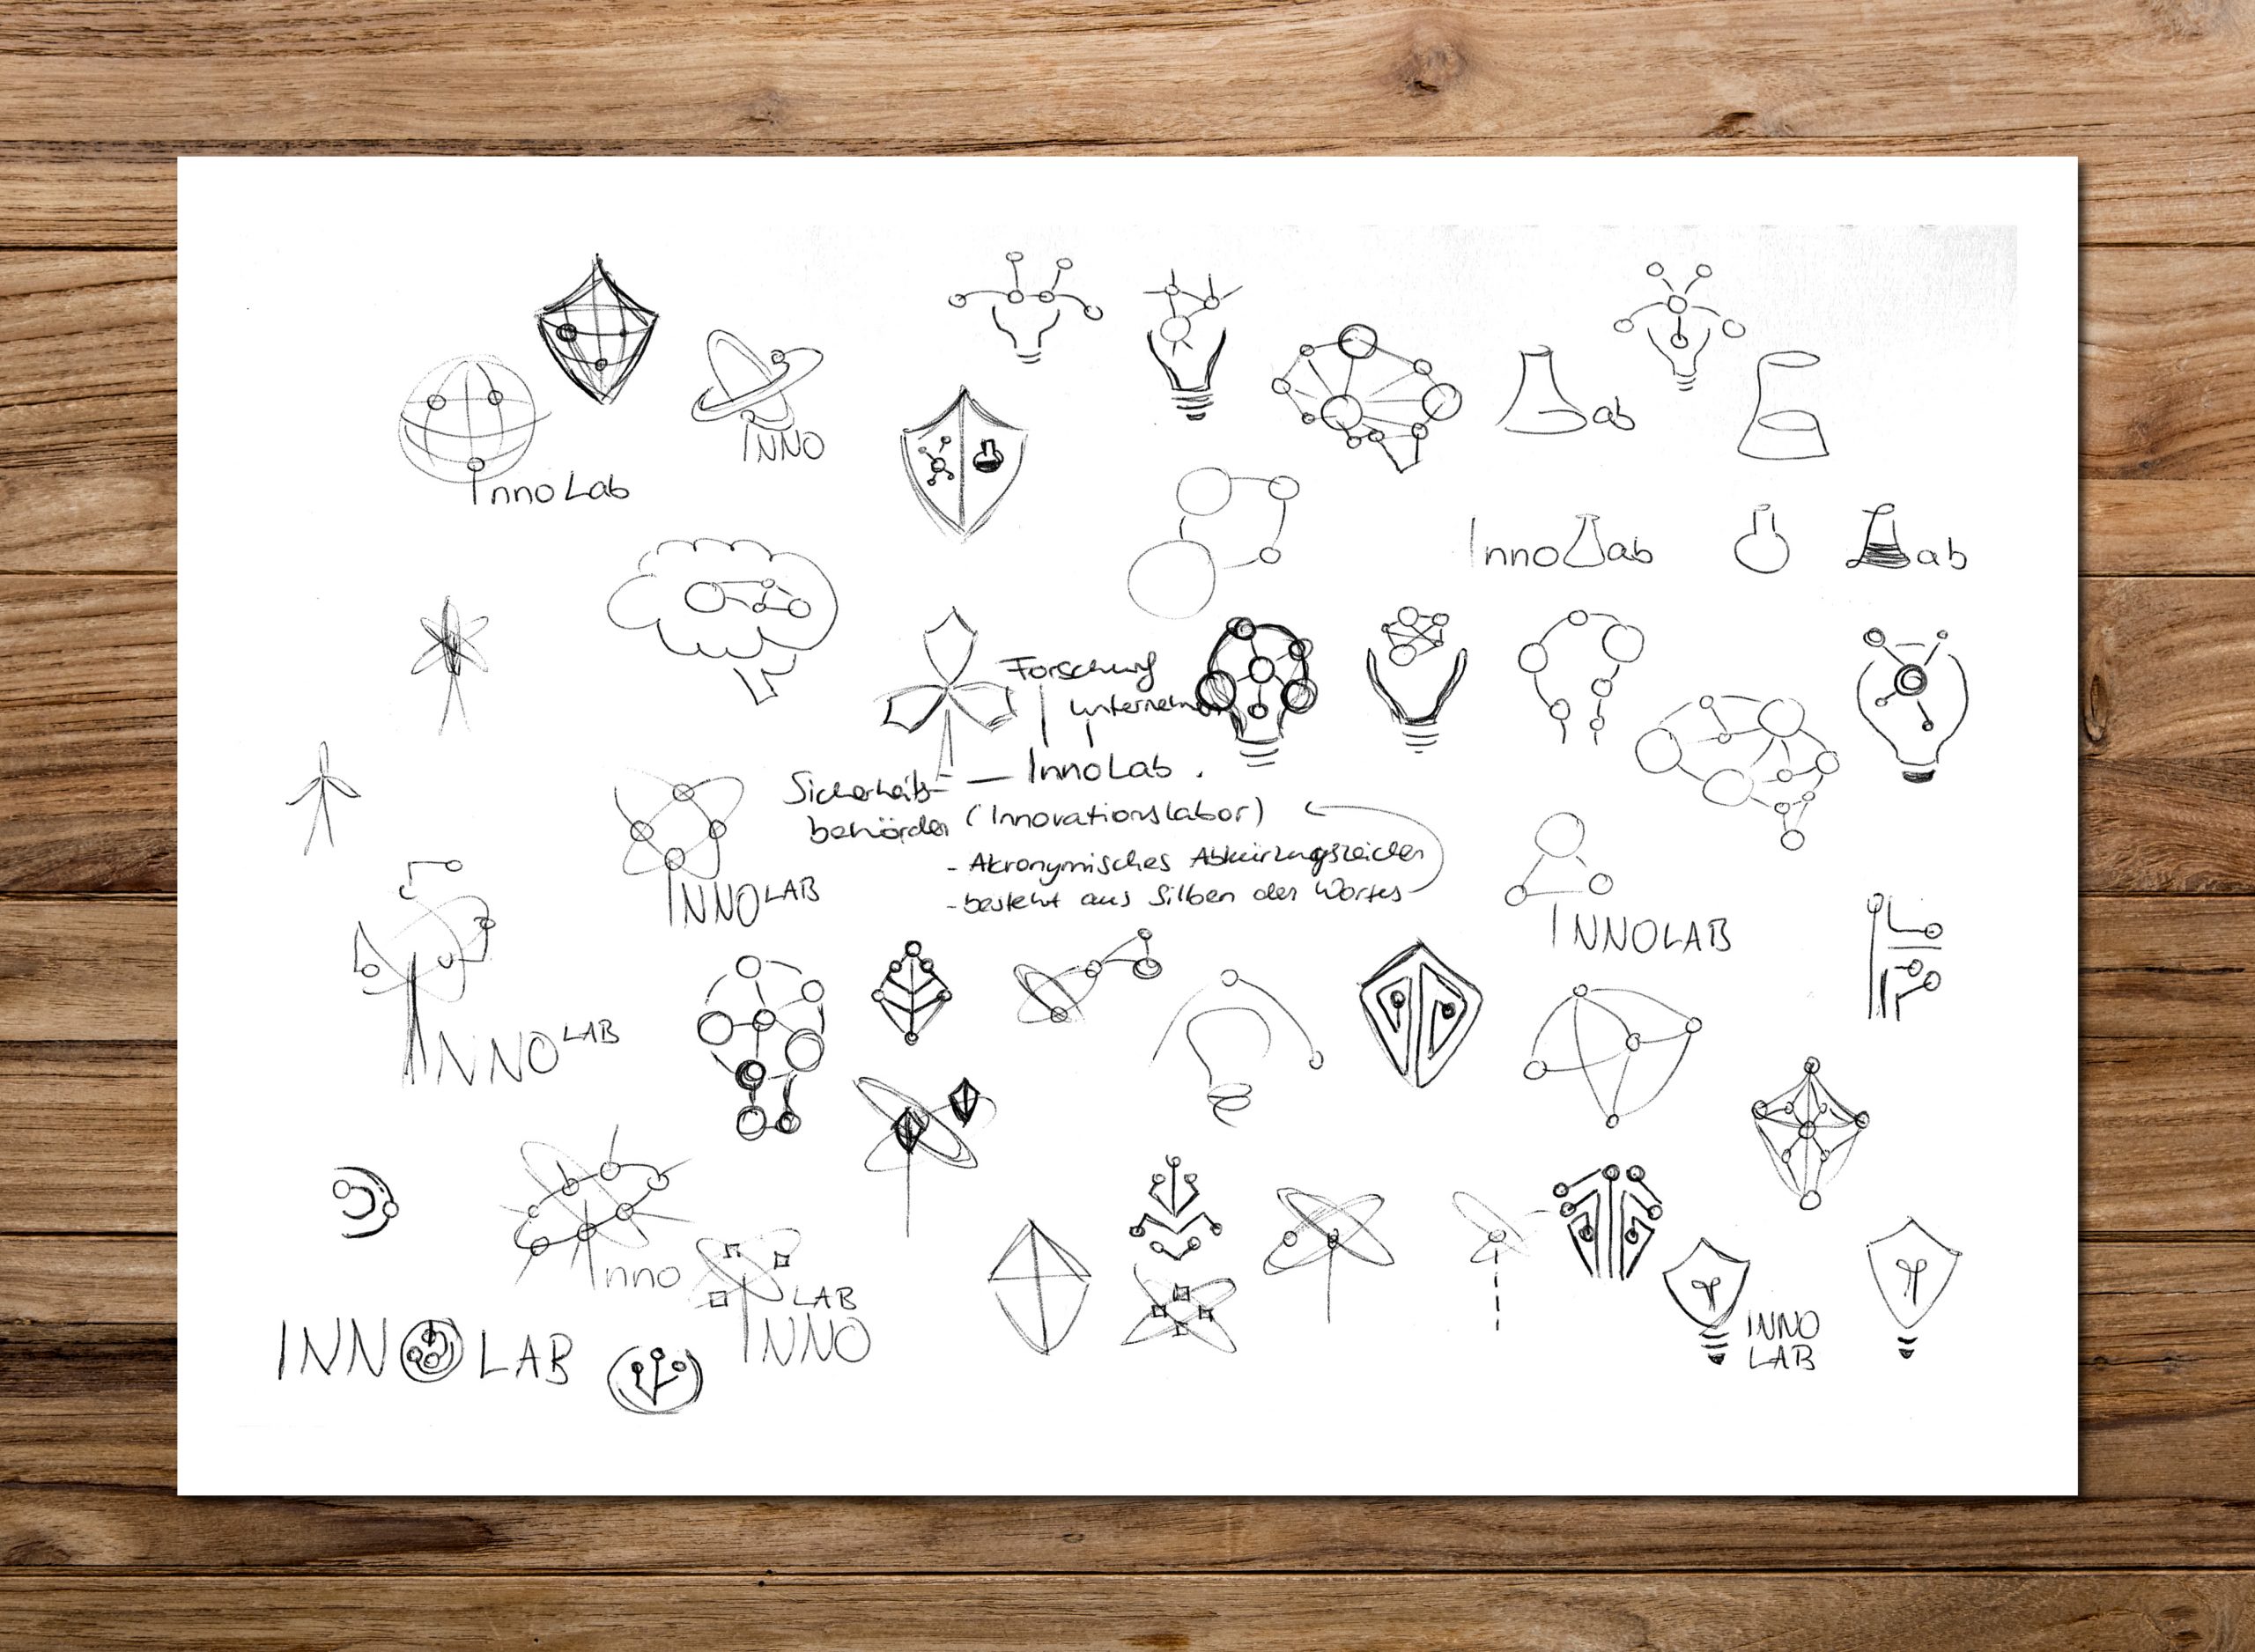 INNO
InnoLab
ab
InnoLab
Lab
Forschung
unternehmen
Sicherheits-
behörden
InnoLab
(Innovationslabor)
- Akronymisches Abkürzungszeichen
- besteht aus Silben des Wortes
INNOLAB
INNOLAB
INNOLAB
Inno
LAB
INNO
INNOLAB
INNO
LAB